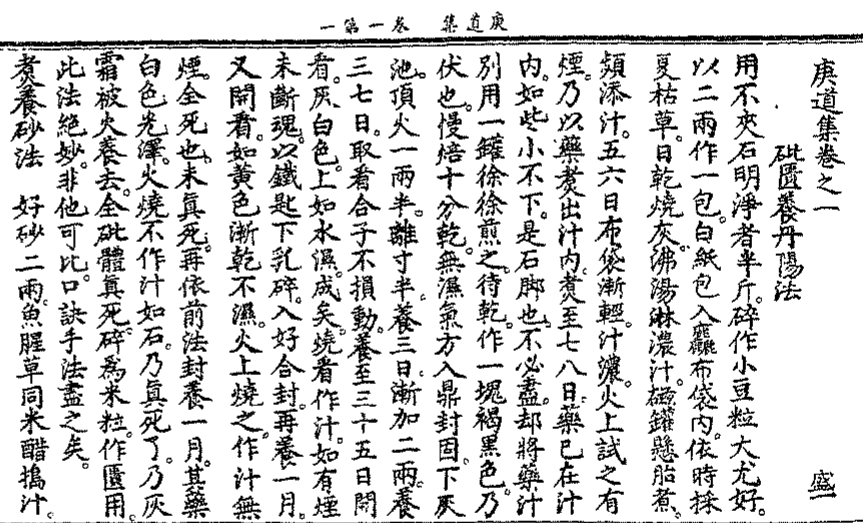 庚道集　卷一第一
庚道集卷之一　盛一
砒匱養丹陽法
用不夾石明淨者半斤。碎作小豆粒大尤好。
以二兩作一包。白紙包入麤布袋內。依時採
夏枯草。日乾燒灰。沸湯淋濃汁。磁罐懸胎煮。
頻添汁。五六日布袋漸輕。汁濃。火上試之有
煙。乃以藥煮出汁內。煮至七八日。藥已在汁
內。如些小不下。是石脚也。不必盡。却將藥汁
別用一罐徐徐煎之待乾。作一塊褐黑色。乃
伏也。慢焙十分乾。無濕氣方入鼎封固。下灰
池。頂火一兩半。離寸半。養三日。漸加二兩。養
三七日。取看合子不損動。養至三十五日開
看。灰白色。上如水濕。成矣。燒看作汁。如有煙
未斷魂。以鐵匙下乳碎。入好合封。再養一月。
又開看。如黃色漸乾不濕。火上燒之。作汁無
煙。全死也。未真死。再依前法封養一月。其藥
白色光澤。火燒不作汁如石。乃真死了。乃灰
霜被火養去。全砒體真死。碎為米粒。作匱用。
此法絕妙。非他可比。口訣手法盡之矣。
煮養砂法　好砂二兩。魚腥草同米醋搗汁。